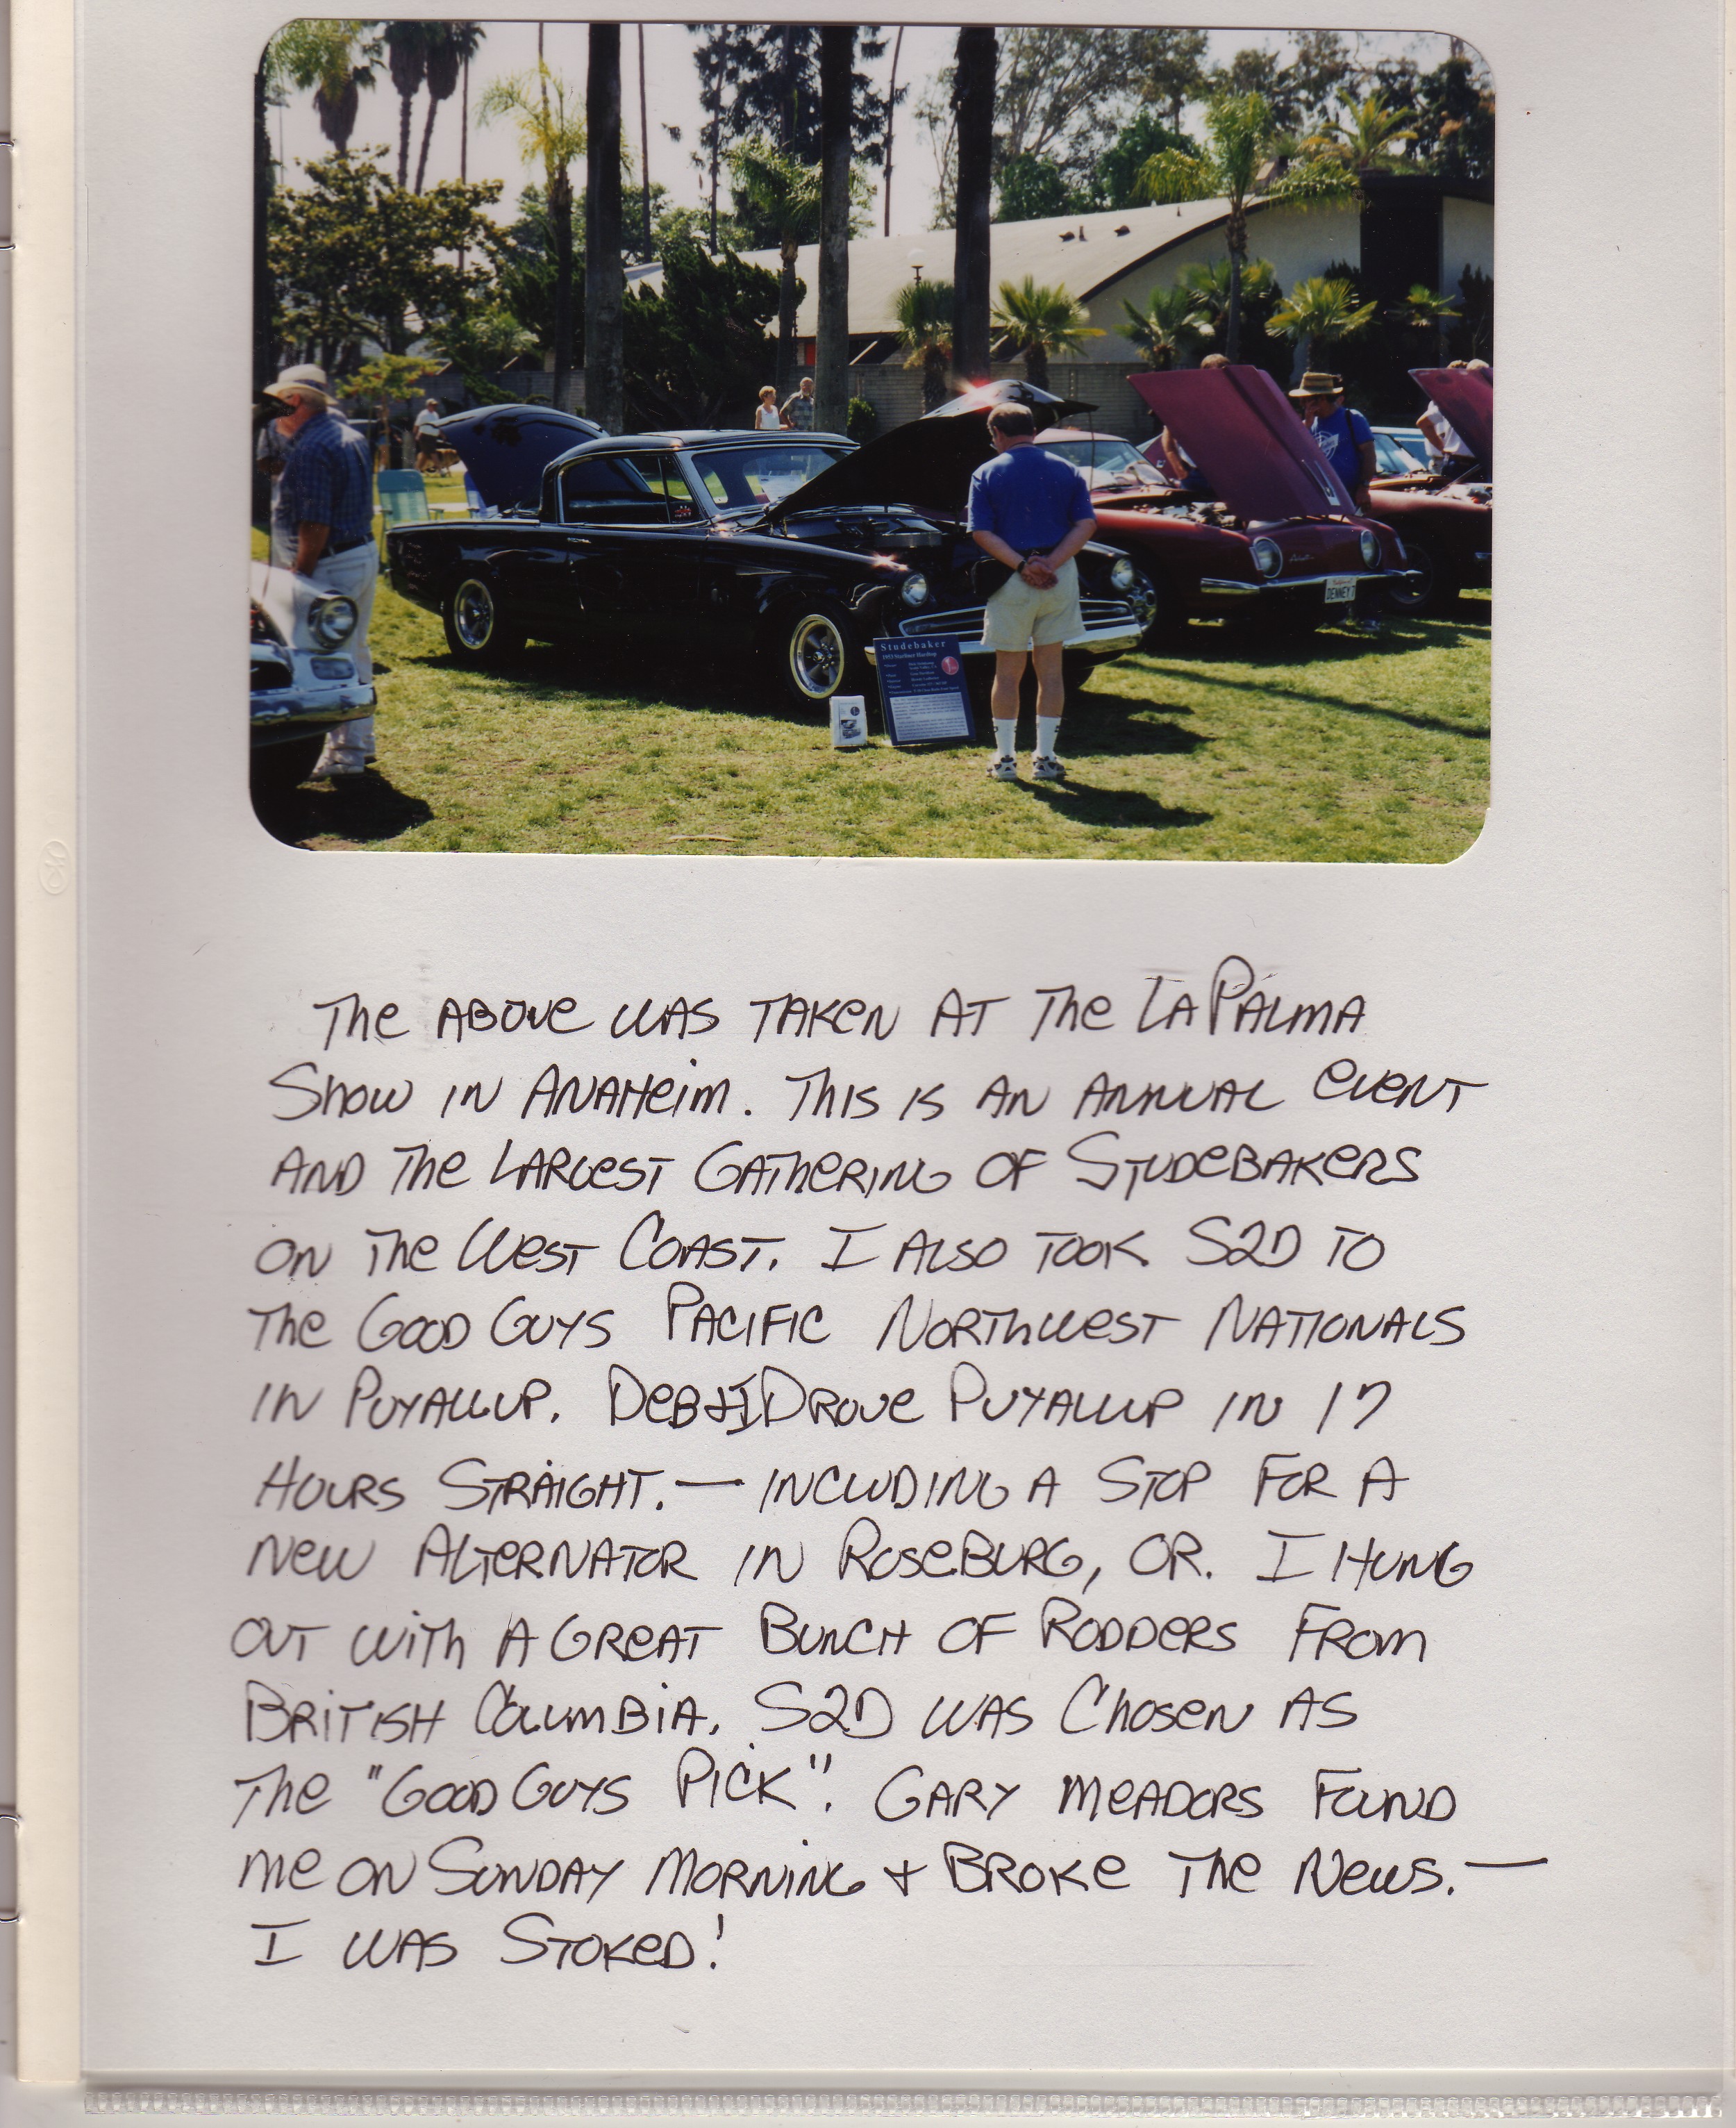 Studebaker
1953 Starliner Hardtop
Avanti
DENNEY 7
The ABOVE WAS TAKEN AT The LA PALMA
Show IN ANAHeim. This is AN ANNUAL eVeNT
AND The LARGeST GATheRING OF STUDeBAKeRS
ON The West COAST. I ALSO TOOK S2D TO
The GOOD GUYS PACIFIC NORThweST NATIONALS
IN PUYALLUP. DeB & I DROVe PUYALLUP IN 17
HOURS STRAIGHT. — INCLUDING A STOP FOR A
New ALTeRNATOR IN ROSeBURG, OR. I HUNG
OUT wiTh A GReAT BUNCH OF RODDeRS FROM
BRITISH COLUMBIA. S2D WAS ChoSeN AS
The "GOOD GUYS PICK". GARY MeADORS FOUND
Me ON SUNDAY MORNING + BROKe The NewS. —
I WAS STOKeD!